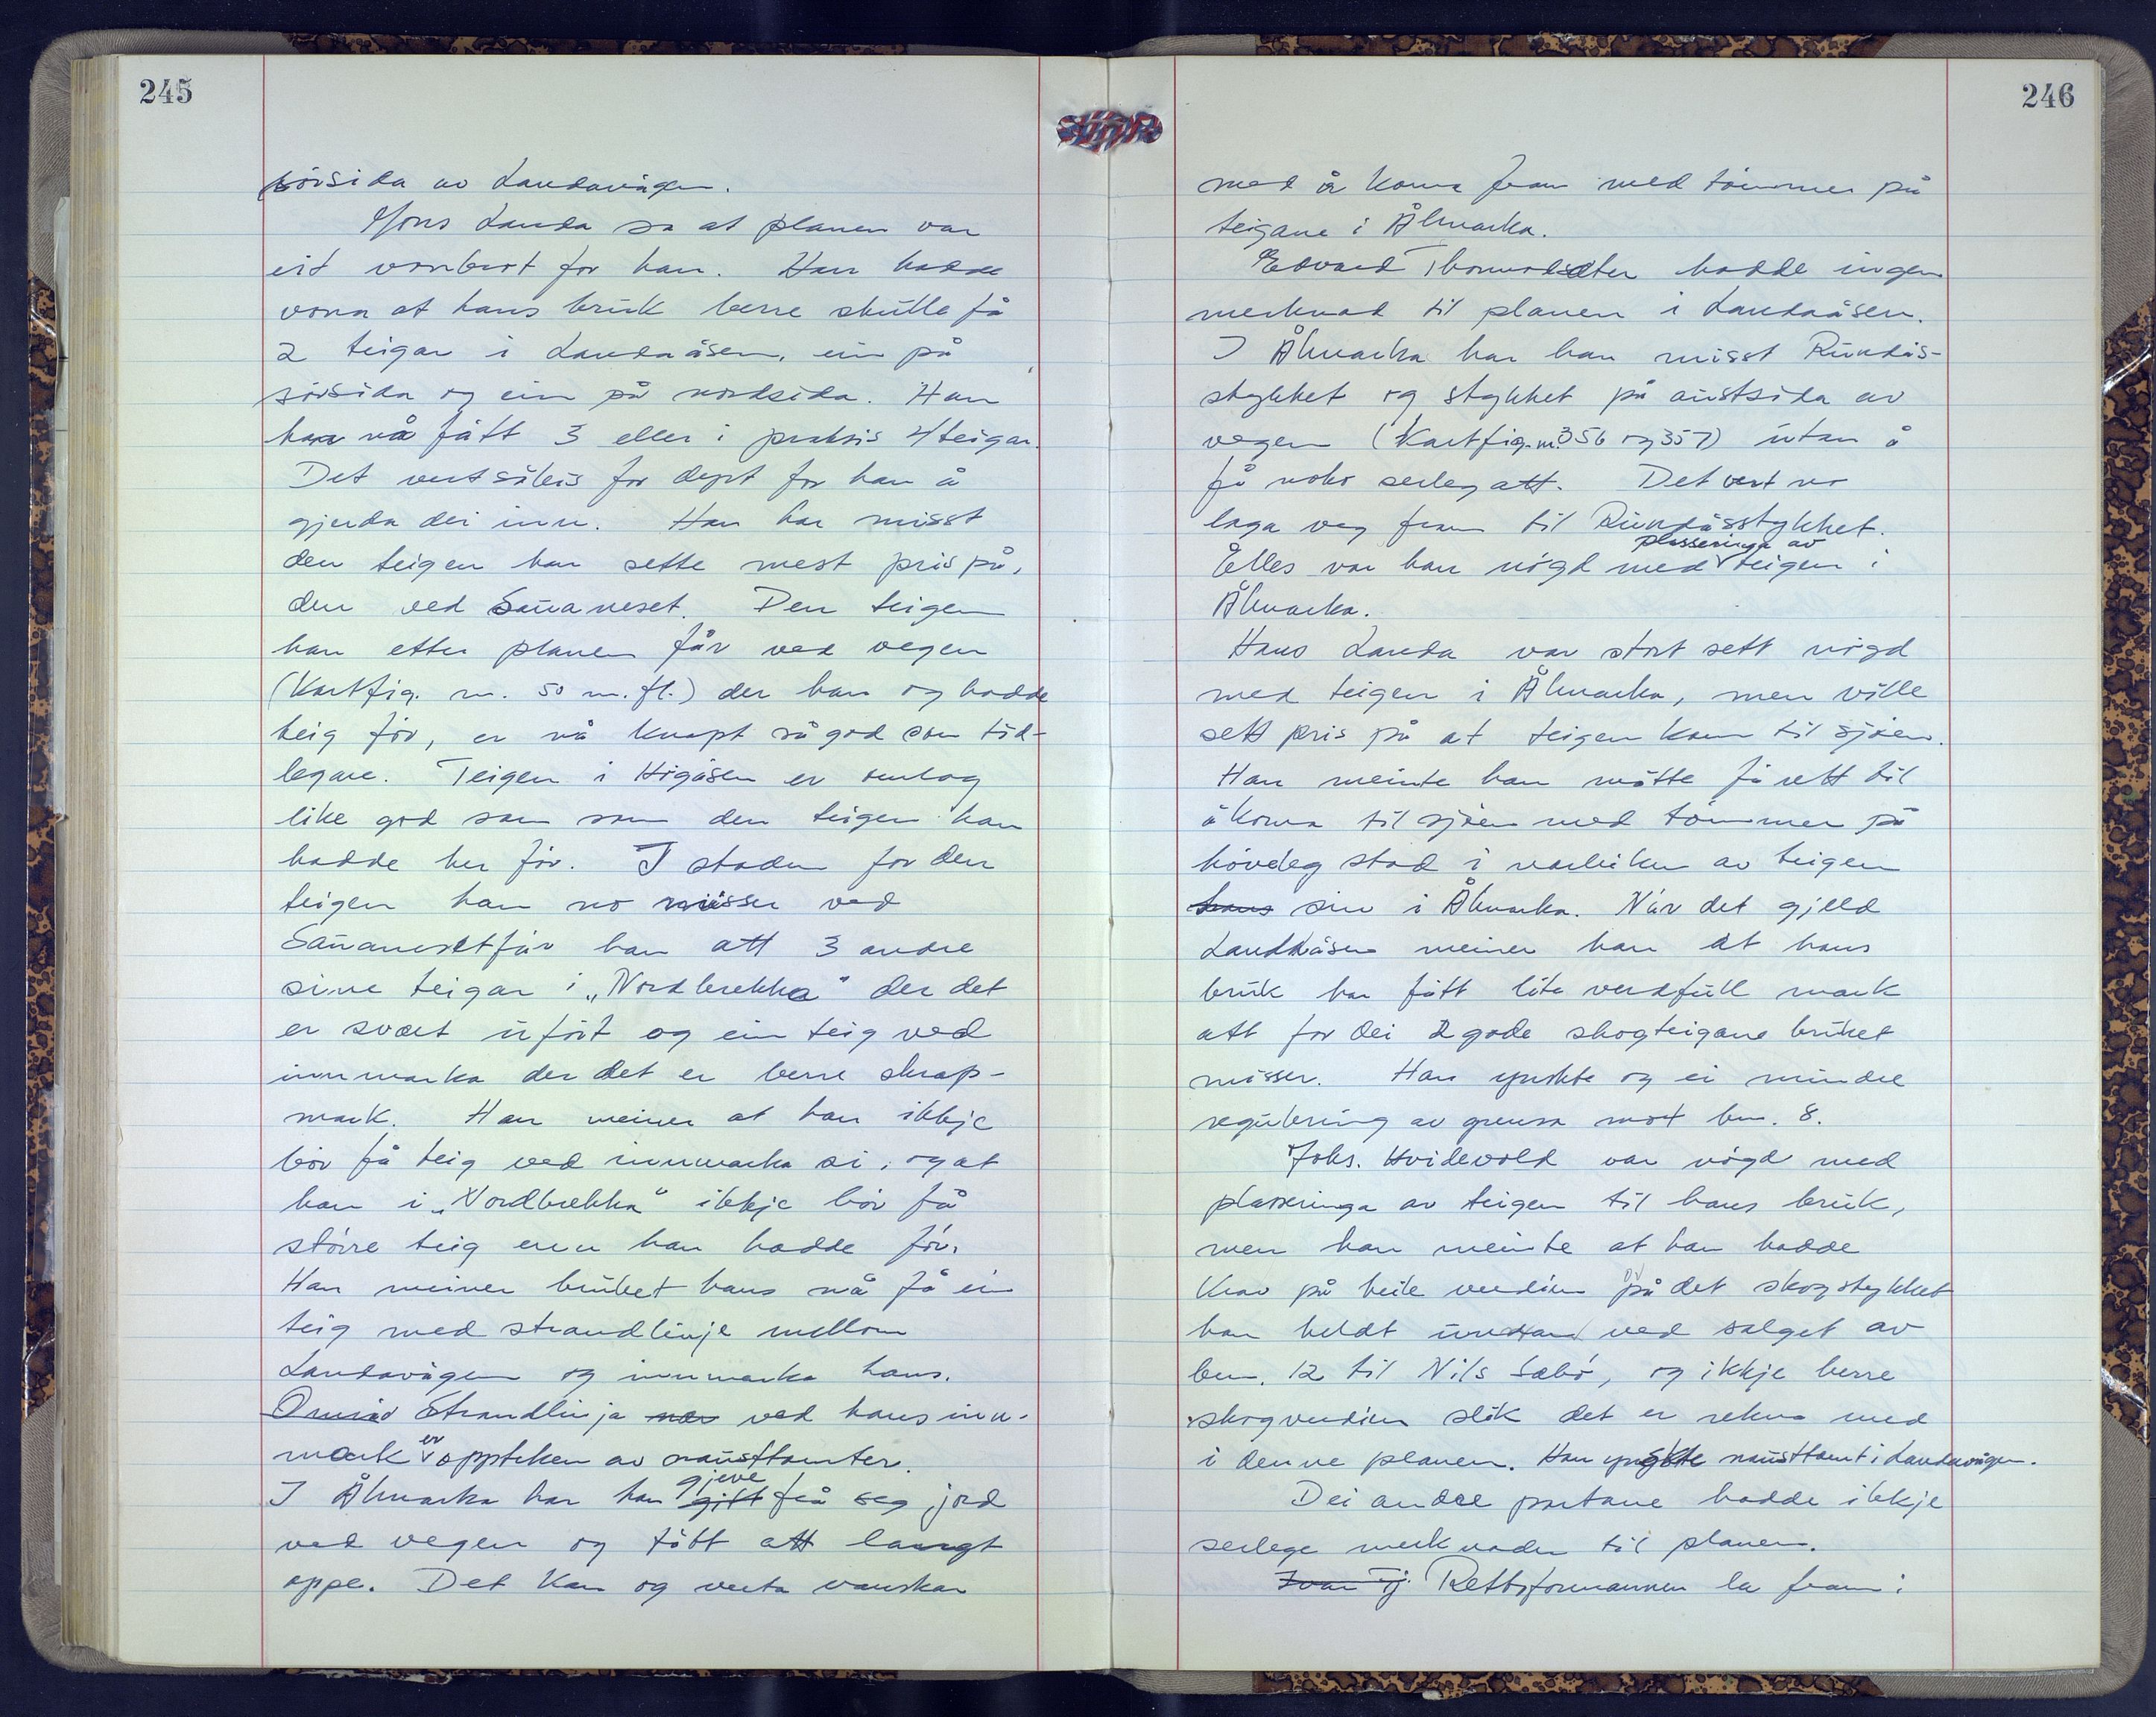 245
sörsida av Landavågen.
Mons Landa sa at planen var
eit vonbrot for han. Han hadde
vona at hans bruk berre skulle få
2 teigar i Landaåsen, ein på
sörsida og ein på nordsida. Han
har nå fått 3 eller i praksis 4 teigar.
Det vert såleis for dyrt for han å
gjerda dei inn. Han har misst
den teigen han sette mest pris på,
den ved Sauaneset. Den teigen
han etter planen får ved vegen
(Kartfig. nr. 50 m.fl.) der han og hadde
teig för, er nå knapt så god som tid-
legare. Teigen i Högåsen er omlag
like god som som den teigen han
hadde her för. I staden for den
teigen han no misser ved
Sauaneset får han att 3 andre
sine teigar i „Nordbrekka" der det
er svært ufört og ein teig ved
innmarka der det er berre skrap-
mark. Han meiner at han ikkje
bör få teig ved innmarka si, og at
han i „Nordbrekka" ikkje bör få
större teig enn han hadde för.
Han meiner bruket hans må få ein
teig med strandlinje mellom
Landavågen og innmarka hans.
Strandlinja ved hans inn-
mark er oppteken av nausttomter.
I Ålmarka har han gjeve gitt frå seg jord
ved vegen og fått att langt
oppe. Det kan og verta vanskar
246
med å koma fram med tömmer på
teigane i Ålmarka.
Edvard Thormodsæter hadde ingen
merknad til planen i Landaåsen.
I Ålmarka har han misst Rundås-
stykket og stykket på austsida av
vegen (Kartfig. nr. 356 og 357) utan å
få noko serleg att. Det vert no
laga veg fram til Rundåsstykket.
Elles var han nögd med plasseringa av teigen i
Ålmarka.
Hans Landa var stort sett nögd
med teigen i Ålmarka, men ville
sett pris på at teigen kom til sjöen.
Han meinte han måtte få rett til
å koma til sjöen med tömmer på
hövdeg stad i narleiken av teigen
hans sin i Ålmarka. Når det gjeld
Landaåsen meiner han at hans
bruk har fått lite verdfull mark
att for dei 2 gode skogteigane bruket
misser. Han ynskte og ei mindre
regulering av grensa mot bnr. 8.
Johs. Hvidevold var nögd med
plasseringa av teigen til hans bruk,
men han meinte at han hadde
krav på heile verdien på det skogstykket
han heldt undan ved salget av
bnr. 12 til Nils Sæbö, og ikkje berre
skogverdien slik det er rekna med
i denne planen. Han ynskte nausttomt i Landavågen.
Dei andre partane hadde ikkje
serlege merknader til planen.
Ivar Tj. Rettsformannen la fram: